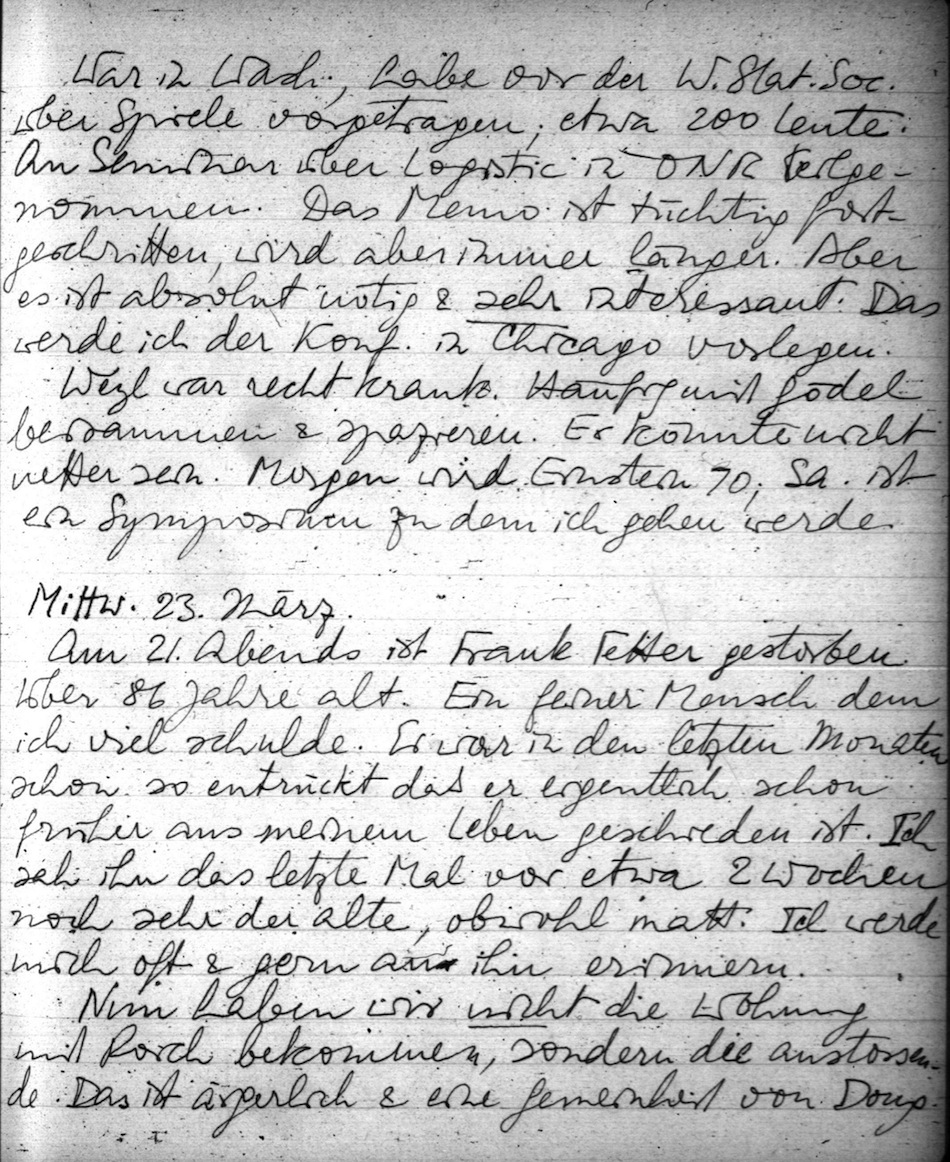 War in Wash., habe vor der W. Stat. Soc.
über Spiele vorgetragen; etwa 200 Leute.
An Seminar über Logistic in ONR teilge-
nommen. Das Memo ist tüchtig fort-
geschritten, wird aber immer länger. Aber
es ist absolut nötig & sehr interessant. Das
werde ich der Konf. in Chicago vorlegen.
Weyl war recht krank. Häufig mit Gödel
beisammen & spazieren. Er könnte nicht
netter sein. Morgen wird Einstein 70; Sa. ist
ein Symposium zu dem ich gehen werde.
Mittw. 23. März.
Am 21. Abends ist Frank Fetter gestorben
über 86 Jahre alt. Ein feiner Mensch dem
ich viel schulde. Er war in den letzten Monaten
schon so entrückt das er eigentlich schon
früher aus meinem Leben geschieden ist. Ich
sah ihn das letzte Mal vor etwa 2 Wochen
noch sehr der alte, obwohl matt. Ich werde
mich oft & gern an ihn erinnern.
Nun haben wir nicht die Wohnung
mit Porch bekommen, sondern die anstossen-
de. Das ist ärgerlich & eine Gemeinheit von Doug.